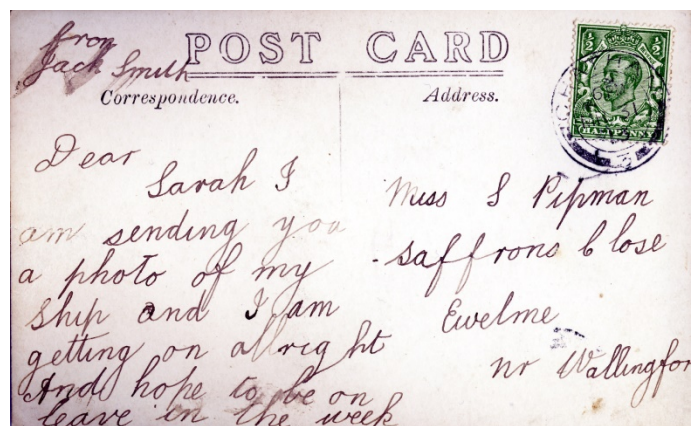 from
Jack Smith
POST CARD
Correspondence.
Address.
½ ½
HALFPENNY
Dear
Sarah I
am sending you
a photo of my
ship and I am
getting on allright
And hope to be on
leave in the week
Miss S Pipman
Saffrons Close
Ewelme
nr Wallingfor